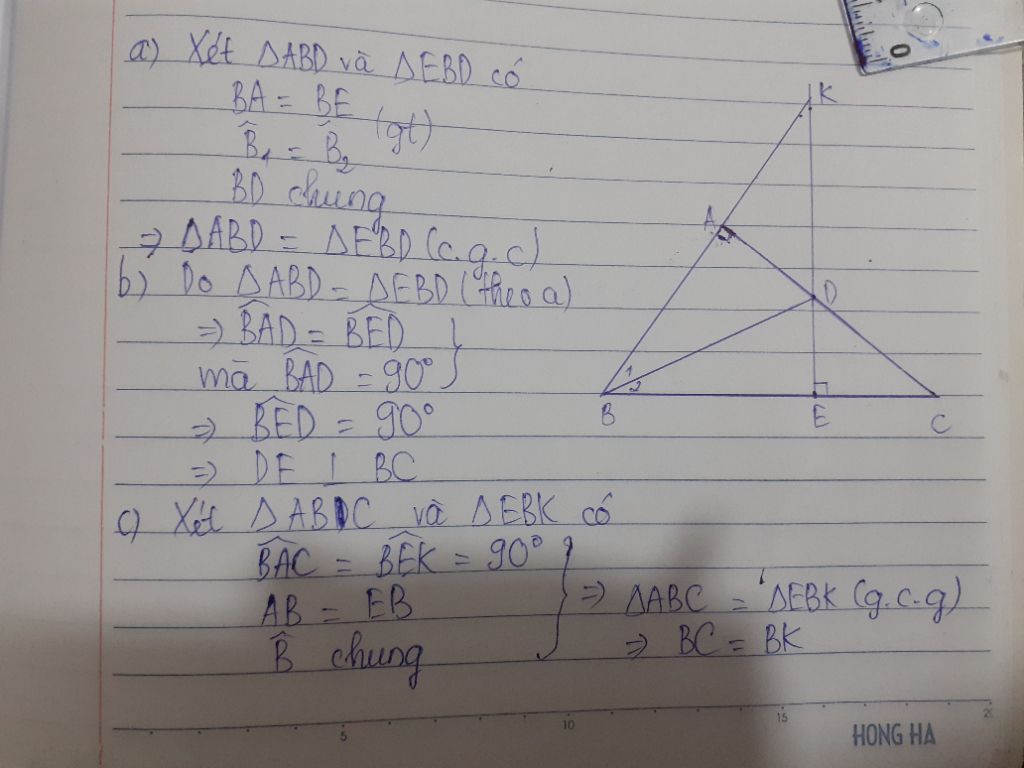 a) Xét ΔABD và ΔEBD có
BA = BE
(gt)
B̂₁ = B̂₂
BD chung
⇒ ΔABD = ΔEBD (c.g.c)
b) Do ΔABD = ΔEBD (theo a)
⇒ \widehat{BAD} = \widehat{BED}
mà \widehat{BAD} = 90°
⇒ \widehat{BED} = 90°
⇒ DE ⊥ BC
c) Xét ΔABC và ΔEBK có
\widehat{BAC} = \widehat{BEK} = 90°
AB = EB
B̂ chung
⇒ ΔABC = ΔEBK (g.c.g)
⇒ BC = BK
K
A
D
1
2
B
E
C
0
5
10
15
2
HONG HA